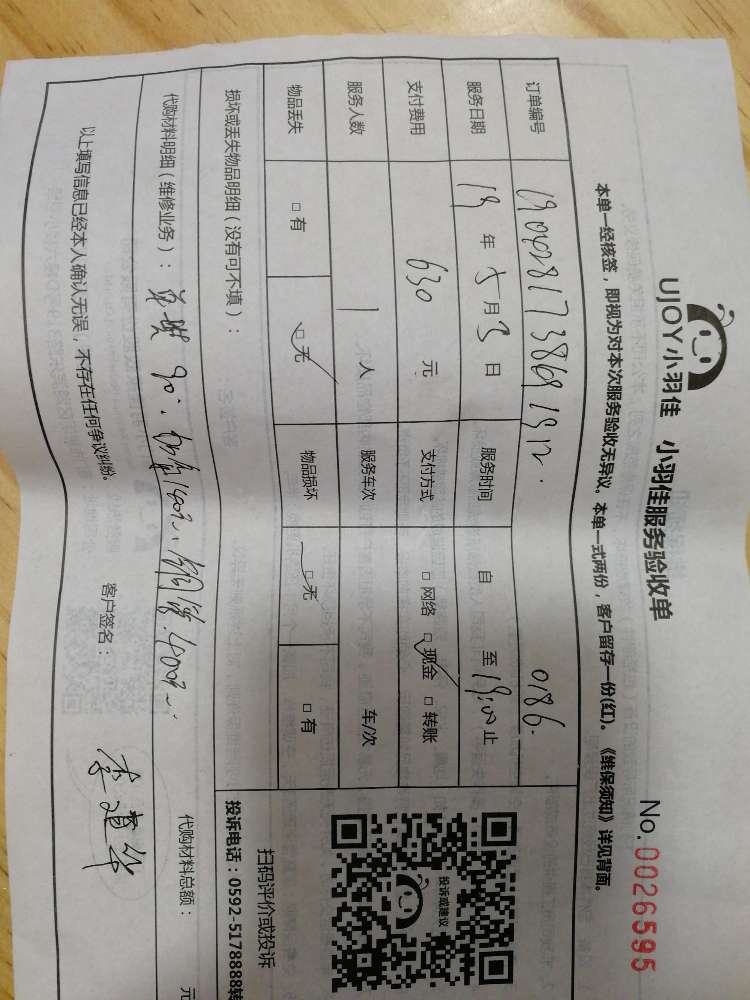 UJOY小羽佳 小羽佳服务验收单 No.0026595
本单一经核签，即视为对本次服务验收无异议。本单一式两份，客户留存一份(红)。《维保须知》详见背面。
订单编号 0186.
服务日期 19 年 5 月 3 日 服务时间 自 至 19:00 止
支付费用 630 元 支付方式 □ 网络 □ 现金 □ 转账
服务人数 1 人 服务车次 车/次
物品丢失 □ 有 □ 无 物品损坏 □ 无 □ 有
损坏或丢失物品明细（没有可不填）：
代购材料明细（维修业务）： 代购材料总额： 元
以上填写信息已经本人确认无误，不存在任何争议纠纷。 客户签名： 李道华
投诉或建议
扫码评价或投诉
投诉电话：0592-5178888转